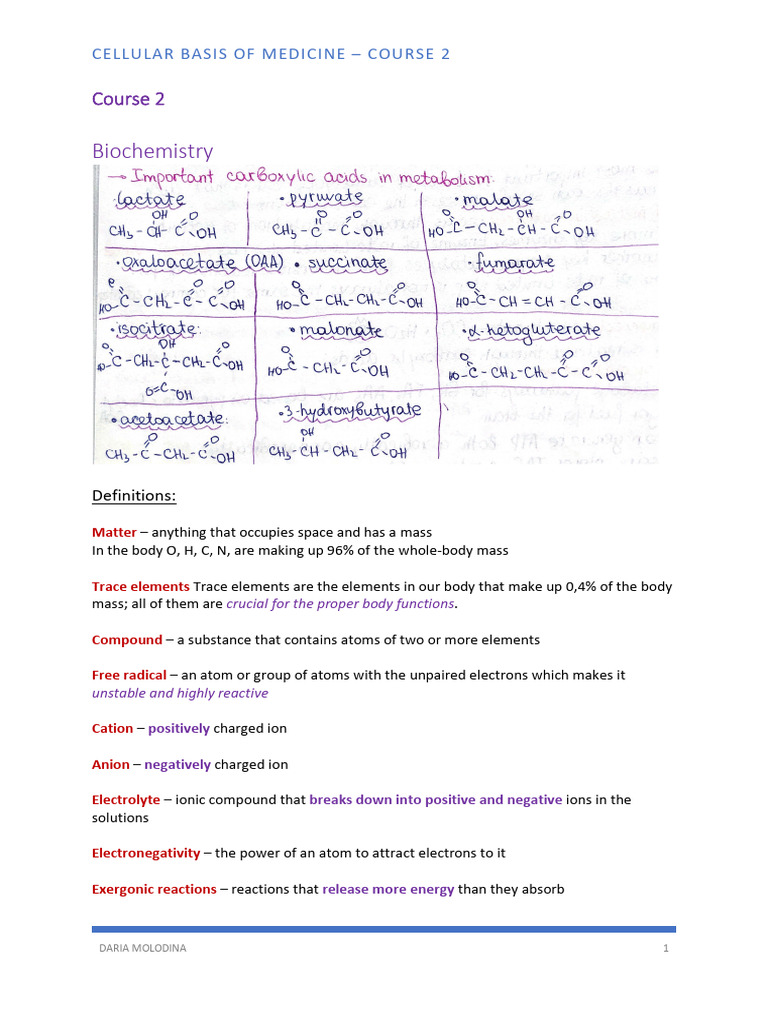 CELLULAR BASIS OF MEDICINE – COURSE 2
Course 2
Biochemistry
→ Important carboxylic acids in metabolism:
·lactate
OH O
CH3 - CH - C OH
• pyruvate
O O
CH3 - C - C OH
• malate
O OH O
HO C - CH2 - CH - C OH
• oxaloacetate (OAA)
O O O
HO C - CH2 - C - C OH
• succinate
O O
HO C - CH2 - CH2 - C OH
• fumarate
O O
HO C - CH = CH - C OH
• isocitrate:
O OH O
HO C - CH2 - C - CH2 - C OH
O=C OH
• malonate
O O
HO C - CH2 - C OH
• α-ketogluterate
O O O
HO C - CH2 - CH2 - C - C OH
• acetoacetate:
O O
CH3 - C - CH2 - C OH
• 3-hydroxybutyrate
OH O
CH3 - CH - CH2 - C OH
Definitions:
Matter – anything that occupies space and has a mass
In the body O, H, C, N, are making up 96% of the whole-body mass
Trace elements Trace elements are the elements in our body that make up 0,4% of the body
mass; all of them are crucial for the proper body functions.
Compound – a substance that contains atoms of two or more elements
Free radical – an atom or group of atoms with the unpaired electrons which makes it
unstable and highly reactive
Cation – positively charged ion
Anion – negatively charged ion
Electrolyte – ionic compound that breaks down into positive and negative ions in the
solutions
Electronegativity – the power of an atom to attract electrons to it
Exergonic reactions – reactions that release more energy than they absorb
DARIA MOLODINA 1